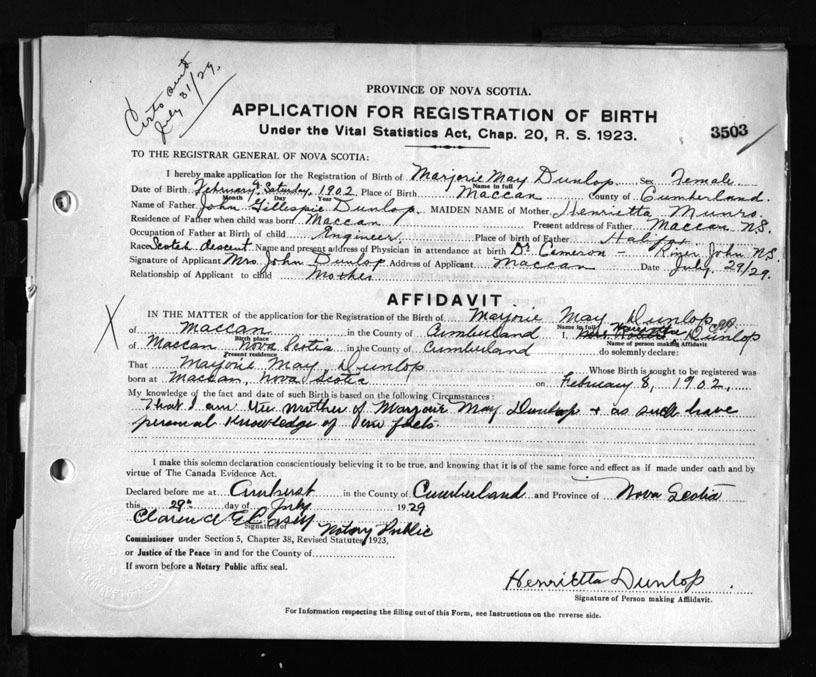 Certs sent
July 31/29.
PROVINCE OF NOVA SCOTIA.
APPLICATION FOR REGISTRATION OF BIRTH
Under the Vital Statistics Act, Chap. 20, R. S. 1923.
3503
TO THE REGISTRAR GENERAL OF NOVA SCOTIA:
I hereby make application for the Registration of Birth of Marjorie May Dunlop Sex Female
Name in full
Date of Birth February 8 Saturday 1902 Place of Birth Maccan County of Cumberland.
Month Day Year
Name of Father John Gillespie Dunlop. MAIDEN NAME of Mother Henrietta Munro
Residence of Father when child was born Maccan Present address of Father Maccan N.S.
Occupation of Father at Birth of child Engineer Place of birth of Father Halifax
Race Scotch descent Name and present address of Physician in attendance at birth Dr Cameron - River John N.S.
Signature of Applicant Mrs John Dunlop Address of Applicant Maccan Date July 29/29.
Relationship of Applicant to child Mother
AFFIDAVIT
IN THE MATTER of the application for the Registration of the Birth of Marjorie May Dunlop
Name in full
of Maccan in the County of Cumberland I, Mrs. Henrietta Dunlop
Birth place
Name of person making Affidavit
of Maccan Nova Scotia in the County of Cumberland do solemnly declare:
Present residence
That Marjorie May Dunlop Whose Birth is sought to be registered was
born at Maccan, Nova Scotia on February 8, 1902,
My knowledge of the fact and date of such Birth is based on the following Circumstances:
That I am the mother of Marjorie May Dunlop + as such have
personal knowledge of facts.
I make this solemn declaration conscientiously believing it to be true, and knowing that it is of the same force and effect as if made under oath and by
virtue of The Canada Evidence Act.
Declared before me at Amherst in the County of Cumberland and Province of Nova Scotia
this 29th day of July 1929
Clarence E Casey Notary Public
Signature of
Commissioner under Section 5, Chapter 38, Revised Statutes 1923,
or Justice of the Peace in and for the County of
If sworn before a Notary Public affix seal.
Henrietta Dunlop
Signature of Person making Affidavit.
For Information respecting the filling out of this Form, see Instructions on the reverse side.